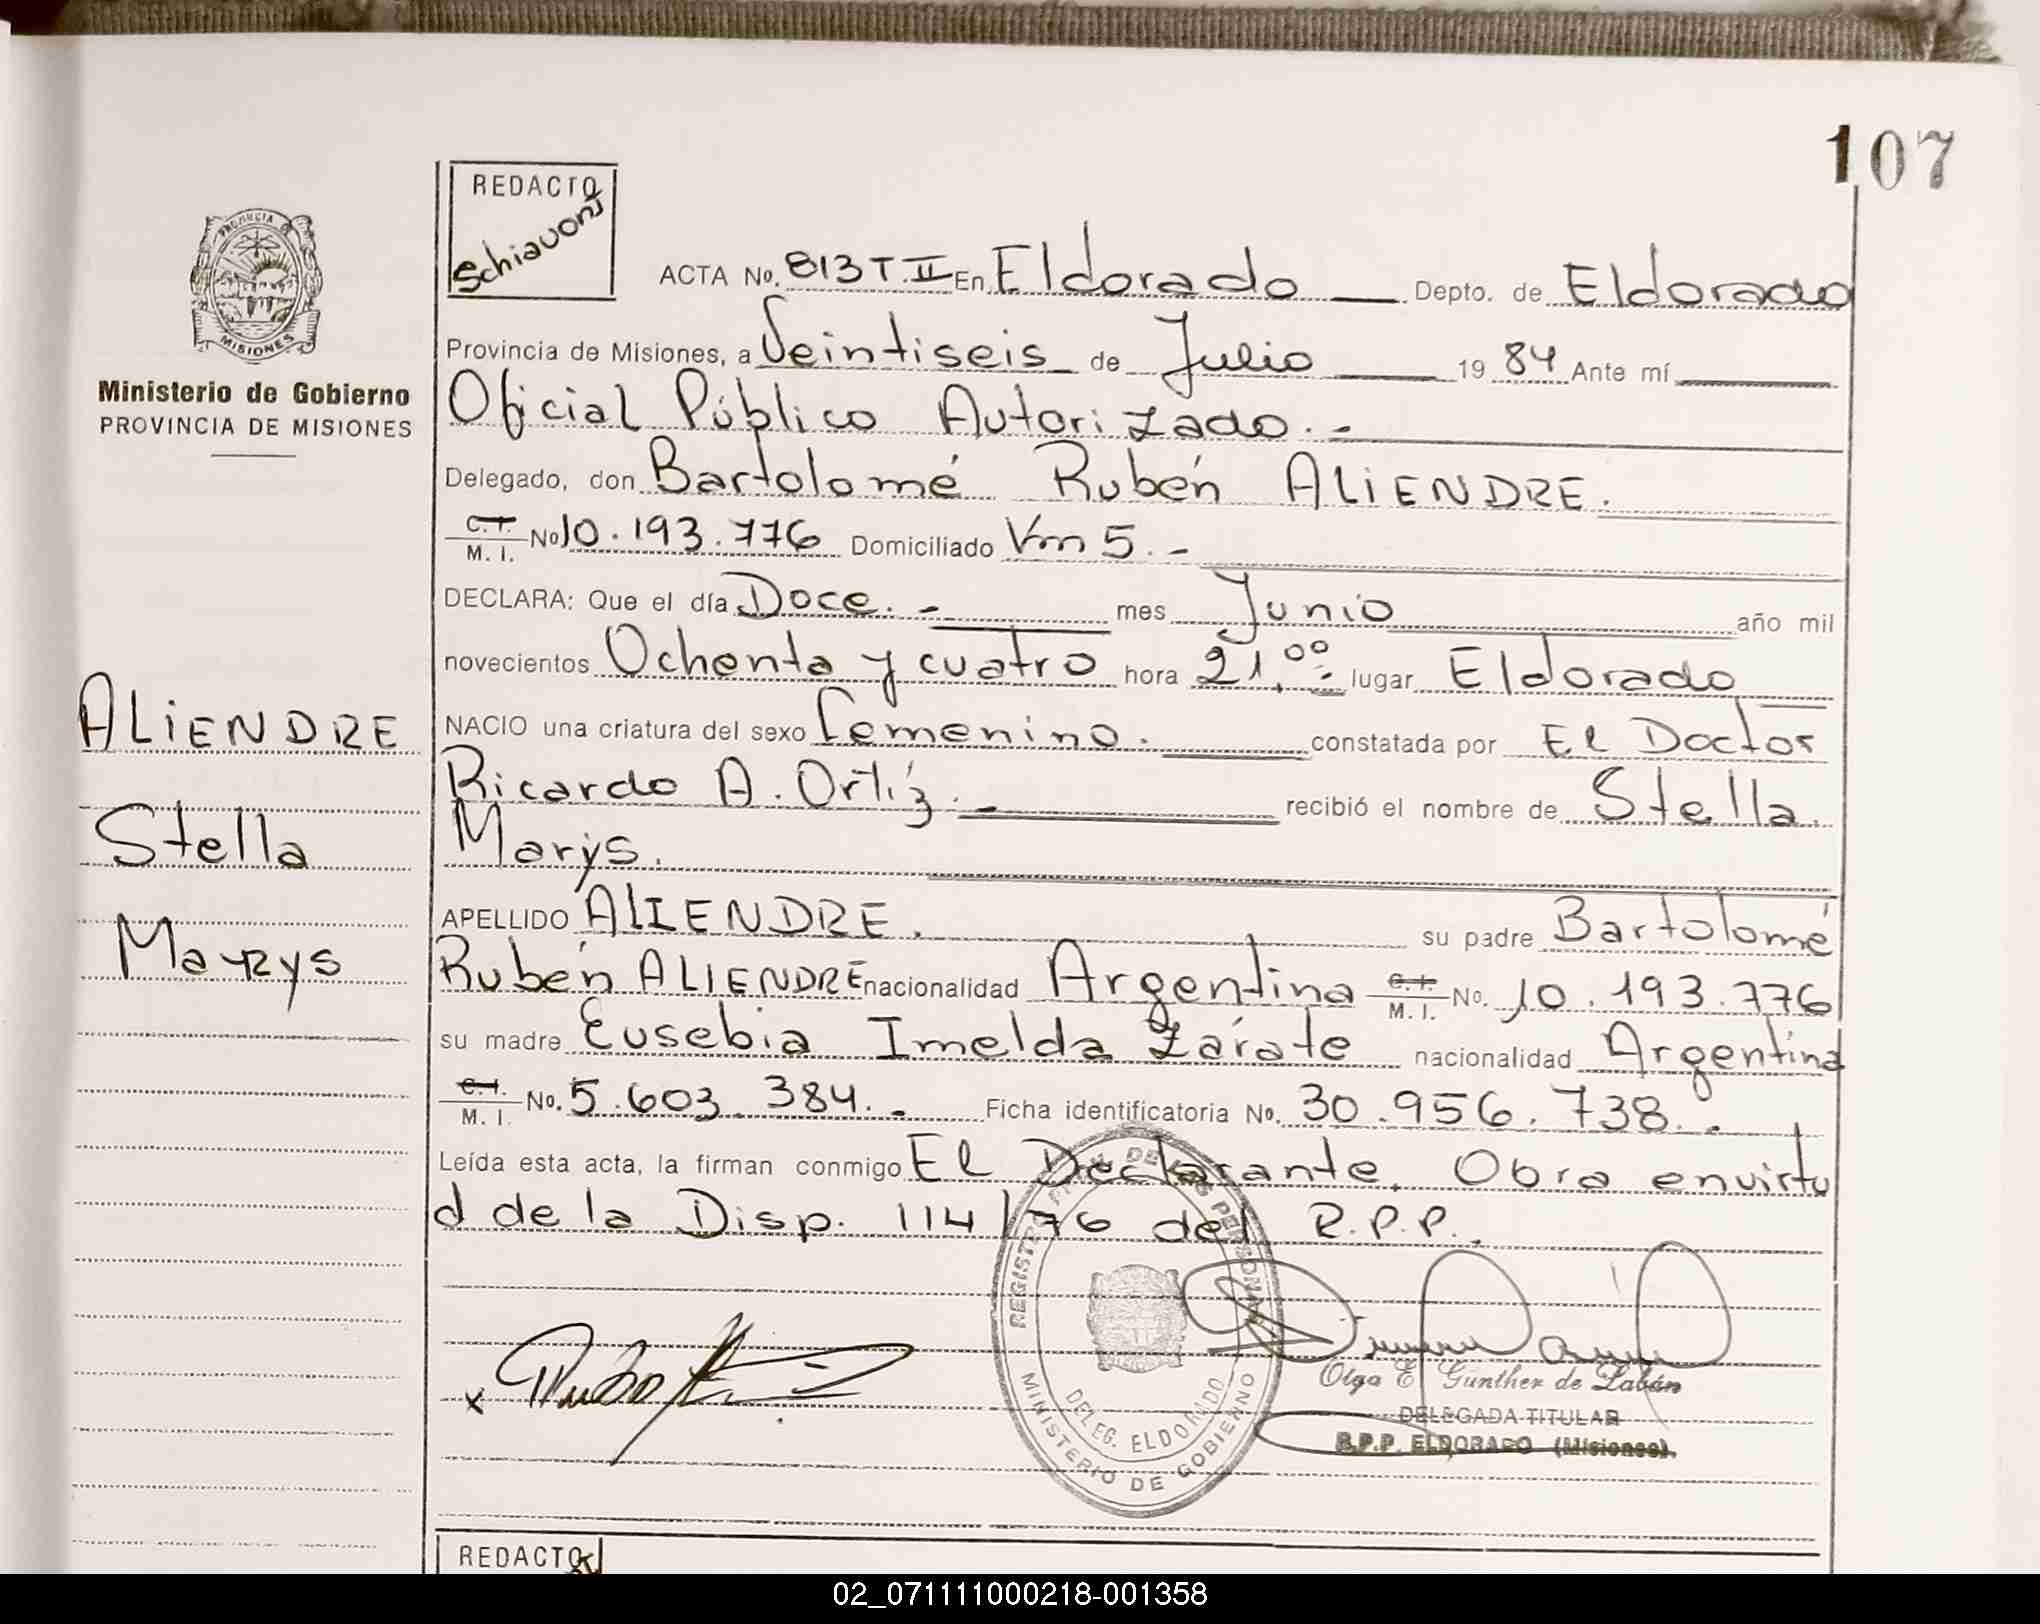 107
REDACTO
Schiavoni
PROVINCIA
MISIONES
Ministerio de Gobierno
PROVINCIA DE MISIONES
ALIENDRE
Stella
Marys
ACTA No. 813 T. II En Eldorado Depto. de Eldorado
Provincia de Misiones, a Veintiseis de Julio 1984 Ante mí
Oficial Público Autorizado.-
Delegado, don Bartolomé Rubén ALIENDRE.
C.I. M. I. No 10.193.776 Domiciliado Km 5.-
DECLARA: Que el día Doce.- mes Junio año mil
novecientos Ochenta y cuatro hora 21.00.- lugar Eldorado
NACIO una criatura del sexo Femenino. constatada por El Doctor
Ricardo A. Ortíz.- recibió el nombre de Stella
Marys.
APELLIDO ALIENDRE. su padre Bartolomé
Rubén ALIENDRE nacionalidad Argentina C.I. M. I. No. 10.193.776
su madre Eusebia Imelda Zárate nacionalidad Argentina
C.I. M. I. No. 5.603.384.- Ficha identificatoria No. 30.956.738.-
Leída esta acta, la firman conmigo El Declarante. Obra envirtu
d de la Disp. 114/76 del R.P.P.
DELEG. ELDORADO
MINISTERIO DE GOBIERNO
x
Olga E. Günther de Labán
DELEGADA TITULAR
R.P.P. ELDORADO (Misiones)
REDACTO
02_071111000218-001358